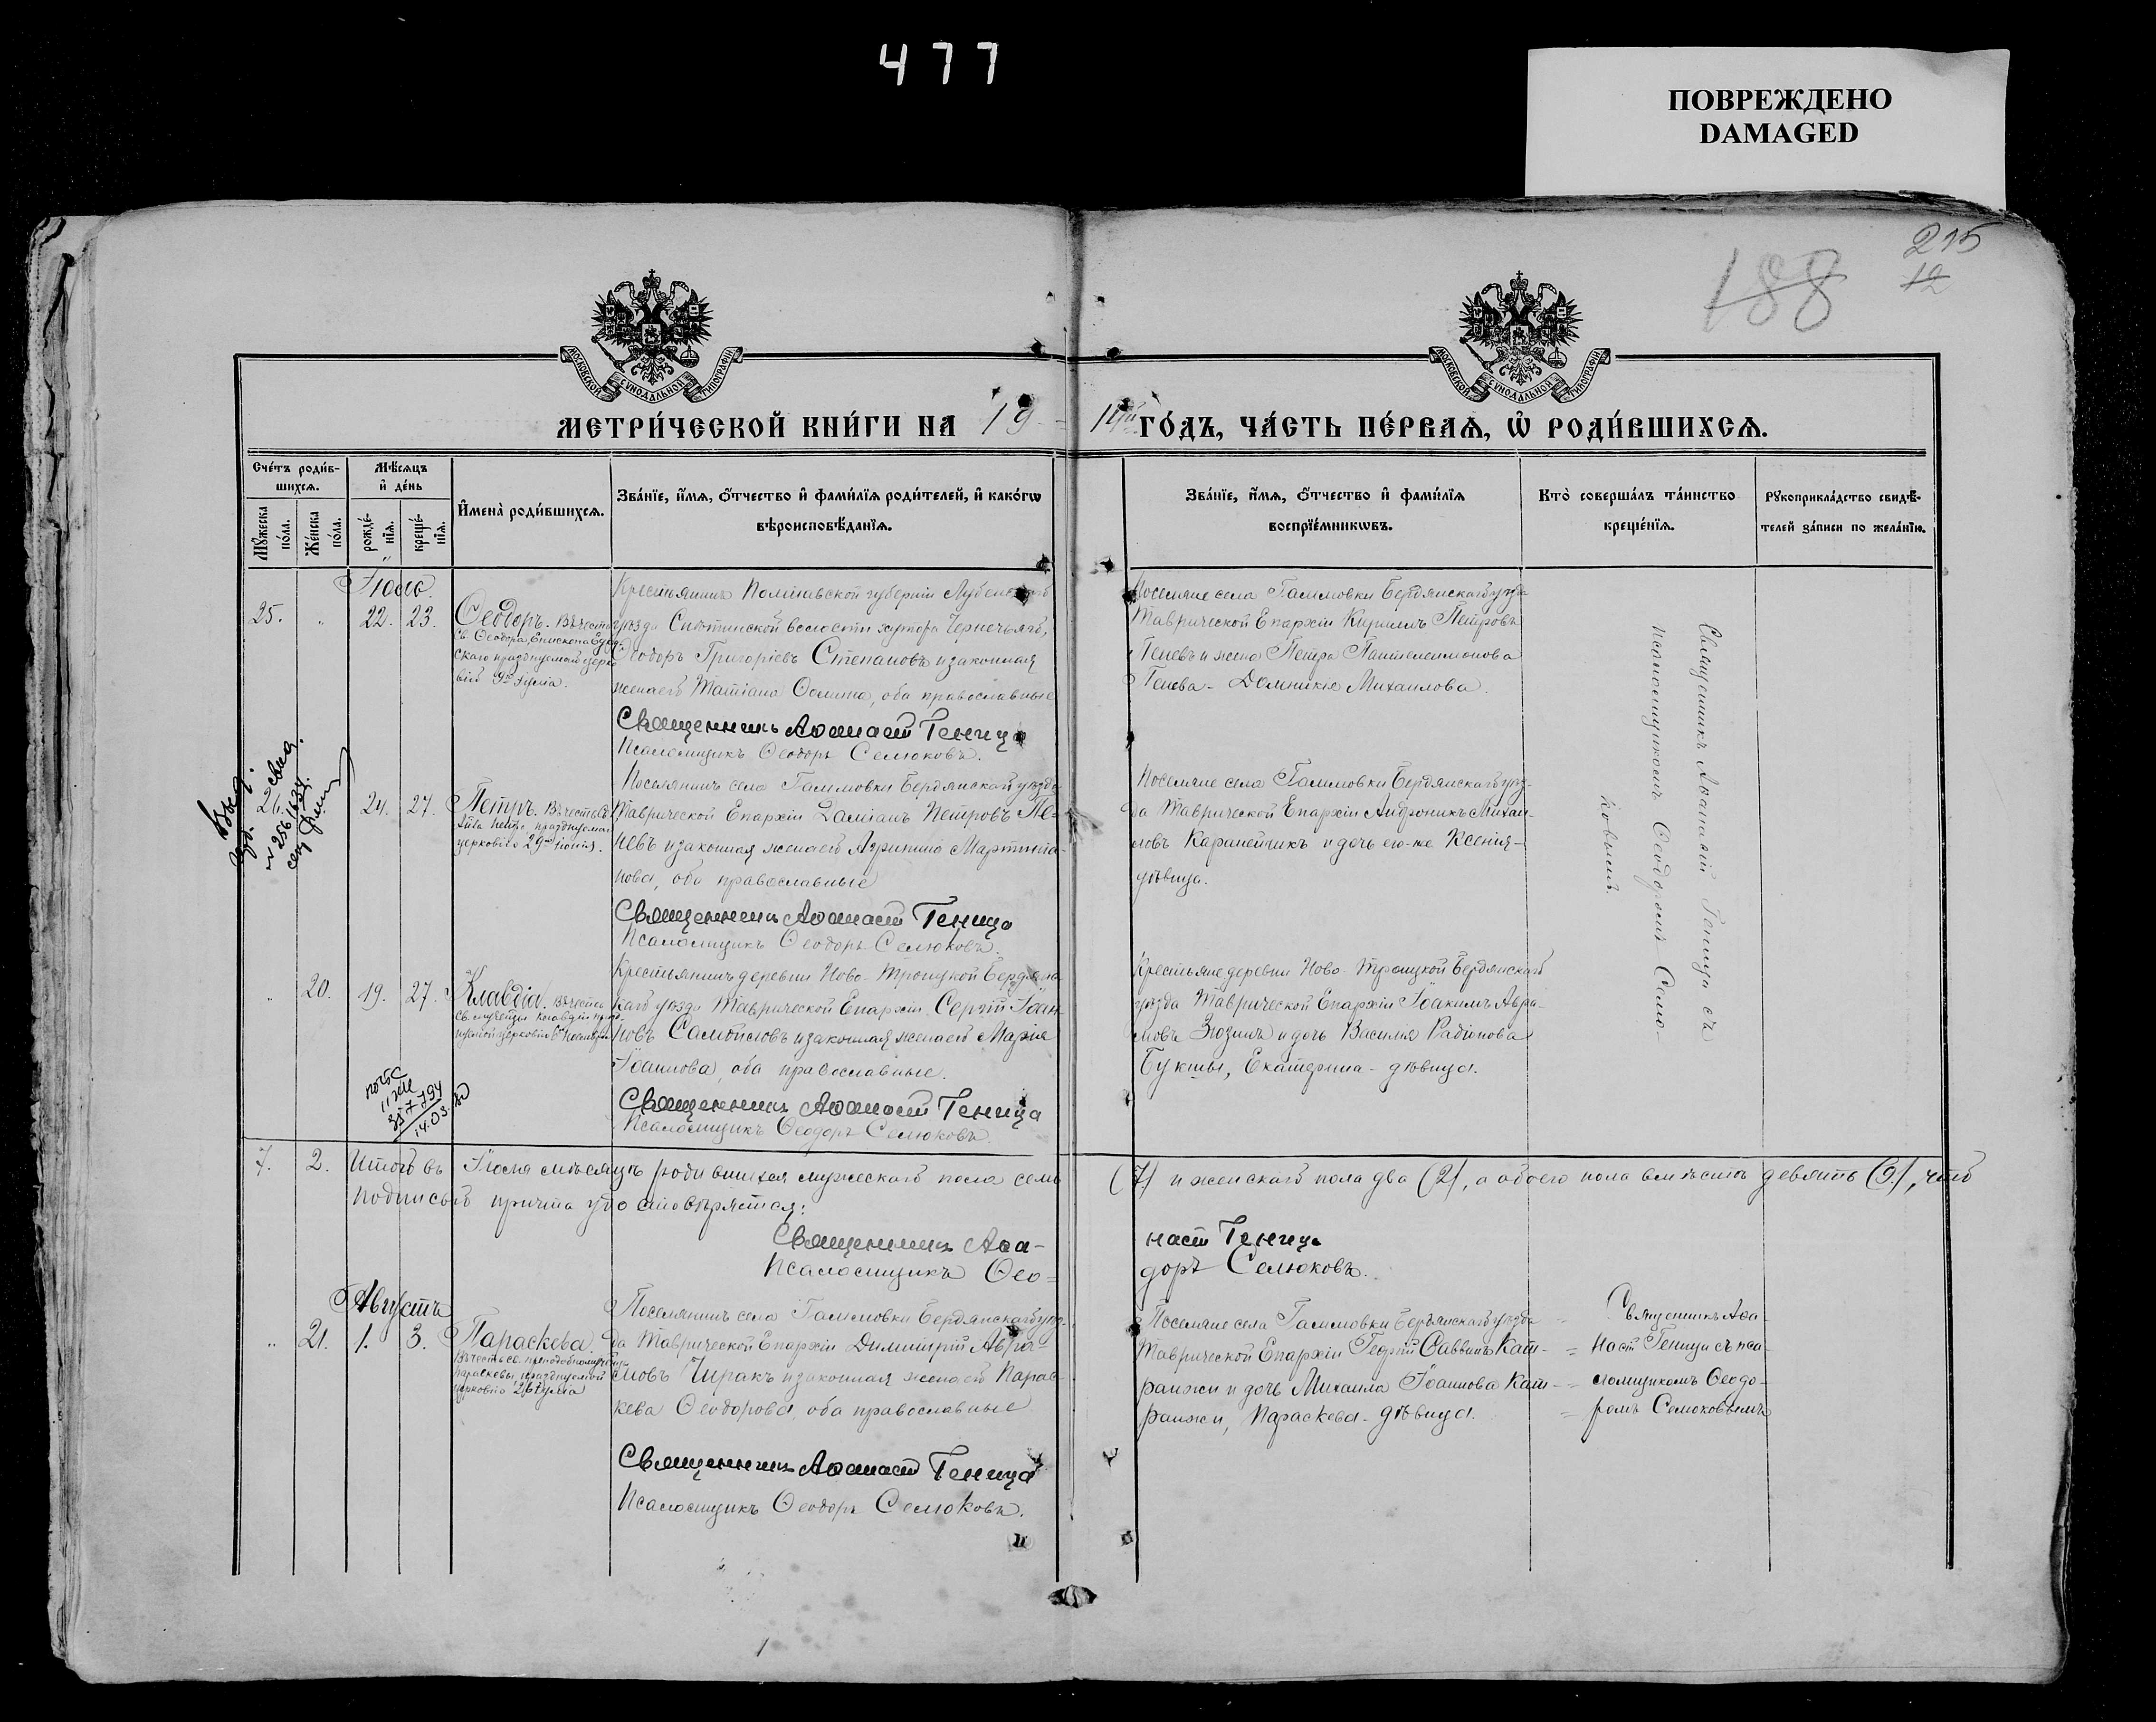 477
ПОВРЕЖДЕНО
DAMAGED
215
12
188
МОСКОВСКОЙ СѴНОДАЛЬНОЙ ТИПОГРАФІИ
МОСКОВСКОЙ СѴНОДАЛЬНОЙ ТИПОГРАФІИ
МЕТРИ́ЧЕСКОЙ КНИ́ГИ НА 19
ГО́ДЪ, ЧА́СТЬ ПЕ́РВАѦ, Ѡ҆ РОДИ́ВШИХСѦ.
Сче́тъ роди́в-
шихсѧ.
Мѣ́сѧцъ
и҆ де́нь
Мꙋ́жеска
по́ла.
Же́нска
по́ла.
рожде́-
нїѧ.
креще́-
нїѧ.
И҆мена̀ роди́вшихсѧ.
Зва́нїе, и҆́мѧ, ѻ҆́тчество и҆ фами́лїѧ роди́телей, и҆ како́гѡ
вѣроисповѣ́данїѧ.
Зва́нїе, и҆́мѧ, ѻ҆́тчество и҆ фами́лїѧ
воспрїе́мникѡвъ.
Кто̀ соверша́лъ та́инство
креще́нїѧ.
Рꙋкоприкла́дство свидѣ́-
телей за́писи по жела́нїю.
Іюль.
25. " 22. 23. Ѳеодоръ. Въ честь
Св. Ѳеодора, Епископа Едес-
скаго празднуемаго церко-
вію 9го Іулія.
Крестьянинъ Полтавской губерніи Лубенскаго
уѣзда Снѣтинской волости хутора
Ѳеодоръ Григоріевъ Степановъ и законная
жена его Татіана, оба православные
Священникъ Аѳанасій Геница
Псаломщикъ Ѳеодоръ Селюковъ.
Поселяне села Гаммовки Бердянскаго уѣзда
Таврической Епархіи Кириллъ Петровъ
Геневъ и жена Петра Пантелеимонова
Генева - Домникія Михаилова.
26. 24. 27. Петръ. Въ честь
празднуемаго
церковію 29го іюнія.
Поселянинъ села Гаммовки Бердянскаго уѣзда
Таврической Епархіи Даміанъ Петровъ Ге-
невъ и законная жена его Агриппина Мартина-
нова, оба православные
Священникъ Аѳанасій Геница
Псаломщикъ Ѳеодоръ Селюковъ.
Поселяне села Гаммовки Бердянскаго уѣз-
да Таврической Епархіи Андроникъ Михаи-
ловъ Карапейчикъ и дочь его-же Ксенія -
дѣвица.
" 20. 19. 27. Клавдія. Въ честь
св. мученицы Клавдіи празд-
нуемой церковію
Крестьянинъ деревни Ново-Троицкой Бердянс-
каго уѣзда Таврической Епархіи Сергій Іоан-
новъ Самойловъ и законная жена его Марія
Іоаннова, оба православные.
Священникъ Аѳанасій Геница
Псаломщикъ Ѳеодоръ Селюковъ.
Крестьяне деревни Ново-Троицкой Бердянскаго
уѣзда Таврической Епархіи Іоакимъ Авра-
мовъ Зюзинъ и дочь Василія Радіонова
Букши, Екатерина - дѣвица.
Священникъ Аѳанасій Геница съ
псаломщикомъ Ѳеодоромъ Селю-
ковымъ.
7. 2. Итого въ Іюлѣ мѣсяцѣ родившихся мужескаго пола семь (7) и женскаго пола два (2), а обоего пола вмѣстѣ девять (9), что
подписью причта удостовѣряется:
Священникъ Аѳа-
насій Геница
Псаломщикъ Ѳео-
доръ Селюковъ.
Августъ
" 21. 1. 3. Параскева.
Въ честь св. преподобномученицы
Параскевы, празднуемой
церковію 26 Іулія
Поселянинъ села Гаммовки Бердянскаго уѣз-
да Таврической Епархіи Димитрій Авра-
мовъ Чиракъ и законная жена его Парас-
кева Ѳеодорова, оба православные
Священникъ Аѳанасій Геница
Псаломщикъ Ѳеодоръ Селюковъ.
Поселяне села Гаммовки Бердянскаго уѣзда
Таврической Епархіи Георгій Саввинъ Кат-
ранжи и дочь Михаила Іоаннова Кат-
ранжи, Параскева - дѣвица.
Священникъ Аѳа-
насій Геница съ пса-
ломщикомъ Ѳеодо-
ромъ Селюковымъ